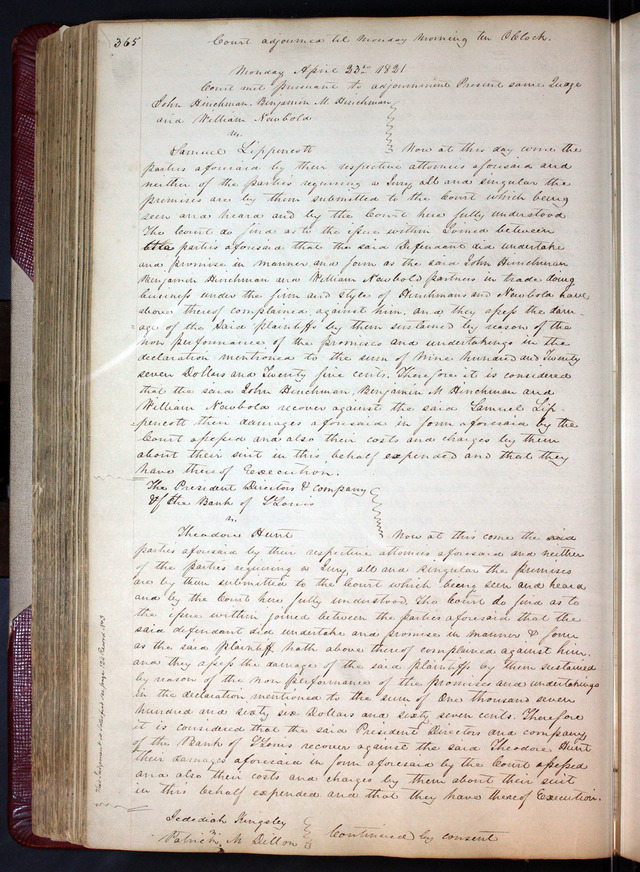 365
Court adjourned til Monday Morning ten OClock.
Monday April 23rd 1821
Court met pursuant to adjournment Present same Judge
John Hinchman, Benjamin M. Hinchman
and William Newbold
vs.
Samuel Lippencott Now at this day come the
parties aforesaid by their respective attornies aforesaid and
neither of the parties requiring a Jury all and singular the
premises are by them submitted to the Court which being
seen and heard and by the Court here fully understood
The Court do find as to the issue within Joined between
parties aforesaid that the said Defendant did undertake
and promise in manner and form as the said John Hinchman
Benjamin Hinchman and William Newbold partners in trade doing
business under the firm and style of Hinchmans and Newbold have
above thereof complained against him, and they assess the dam-
age of the said plaintiffs by them sustained by reason of the
non performance of the promises and undertakings in the
declaration mentioned to the sum of Nine hundred and Twenty
seven Dollars and Twenty five cents. Therefore it is considered
that the said John Hinchman, Benjamin M Hinchman and
William Newbold recover against the said Samuel Lip-
pencott their damages aforesaid in form aforesaid by the
Court assessed and also their costs and charges by them
about their suit in this behalf expended and that they
have thereof Execution.
The President Directors & company
of the Bank of St Louis
vs.
Theodore Hunt Now at this come the said
parties aforesaid by their respective attornies aforesaid and neither
of the parties requiring a Jury, all and singular the premises
are by them submitted to the Court which being seen and heard
and by the Court here fully understood, The Court do find as to
the issue within joined between the parties aforesaid that the
said defendant did undertake and promise in manner & form
as the said plaintiff hath above thereof complained against him,
and they assess the damage of the said plaintiffs by them sustained
by reason of the non performance of the promises and undertakings
in the declaration mentioned to the sum of One thousand seven
hundred and sixty six Dollars and sixty seven cents. Therefore
it is considered that the said President Directors and company
of the Bank of St Louis recover against the said Theodore Hunt
their damages aforesaid in form aforesaid by the Court assessed
and also their costs and charges by them about their suit
in this behalf expended and that they have thereof Execution.
Jedediah Kingsley
vs
Patrick M Dillon Continued by consent
This Judgment is satisfied see page 126 Record No 3